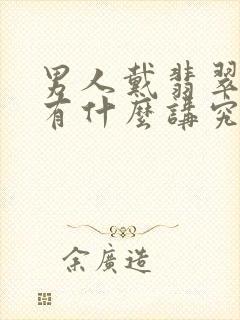 男人戴翡翠
有什麼講究
余廣造